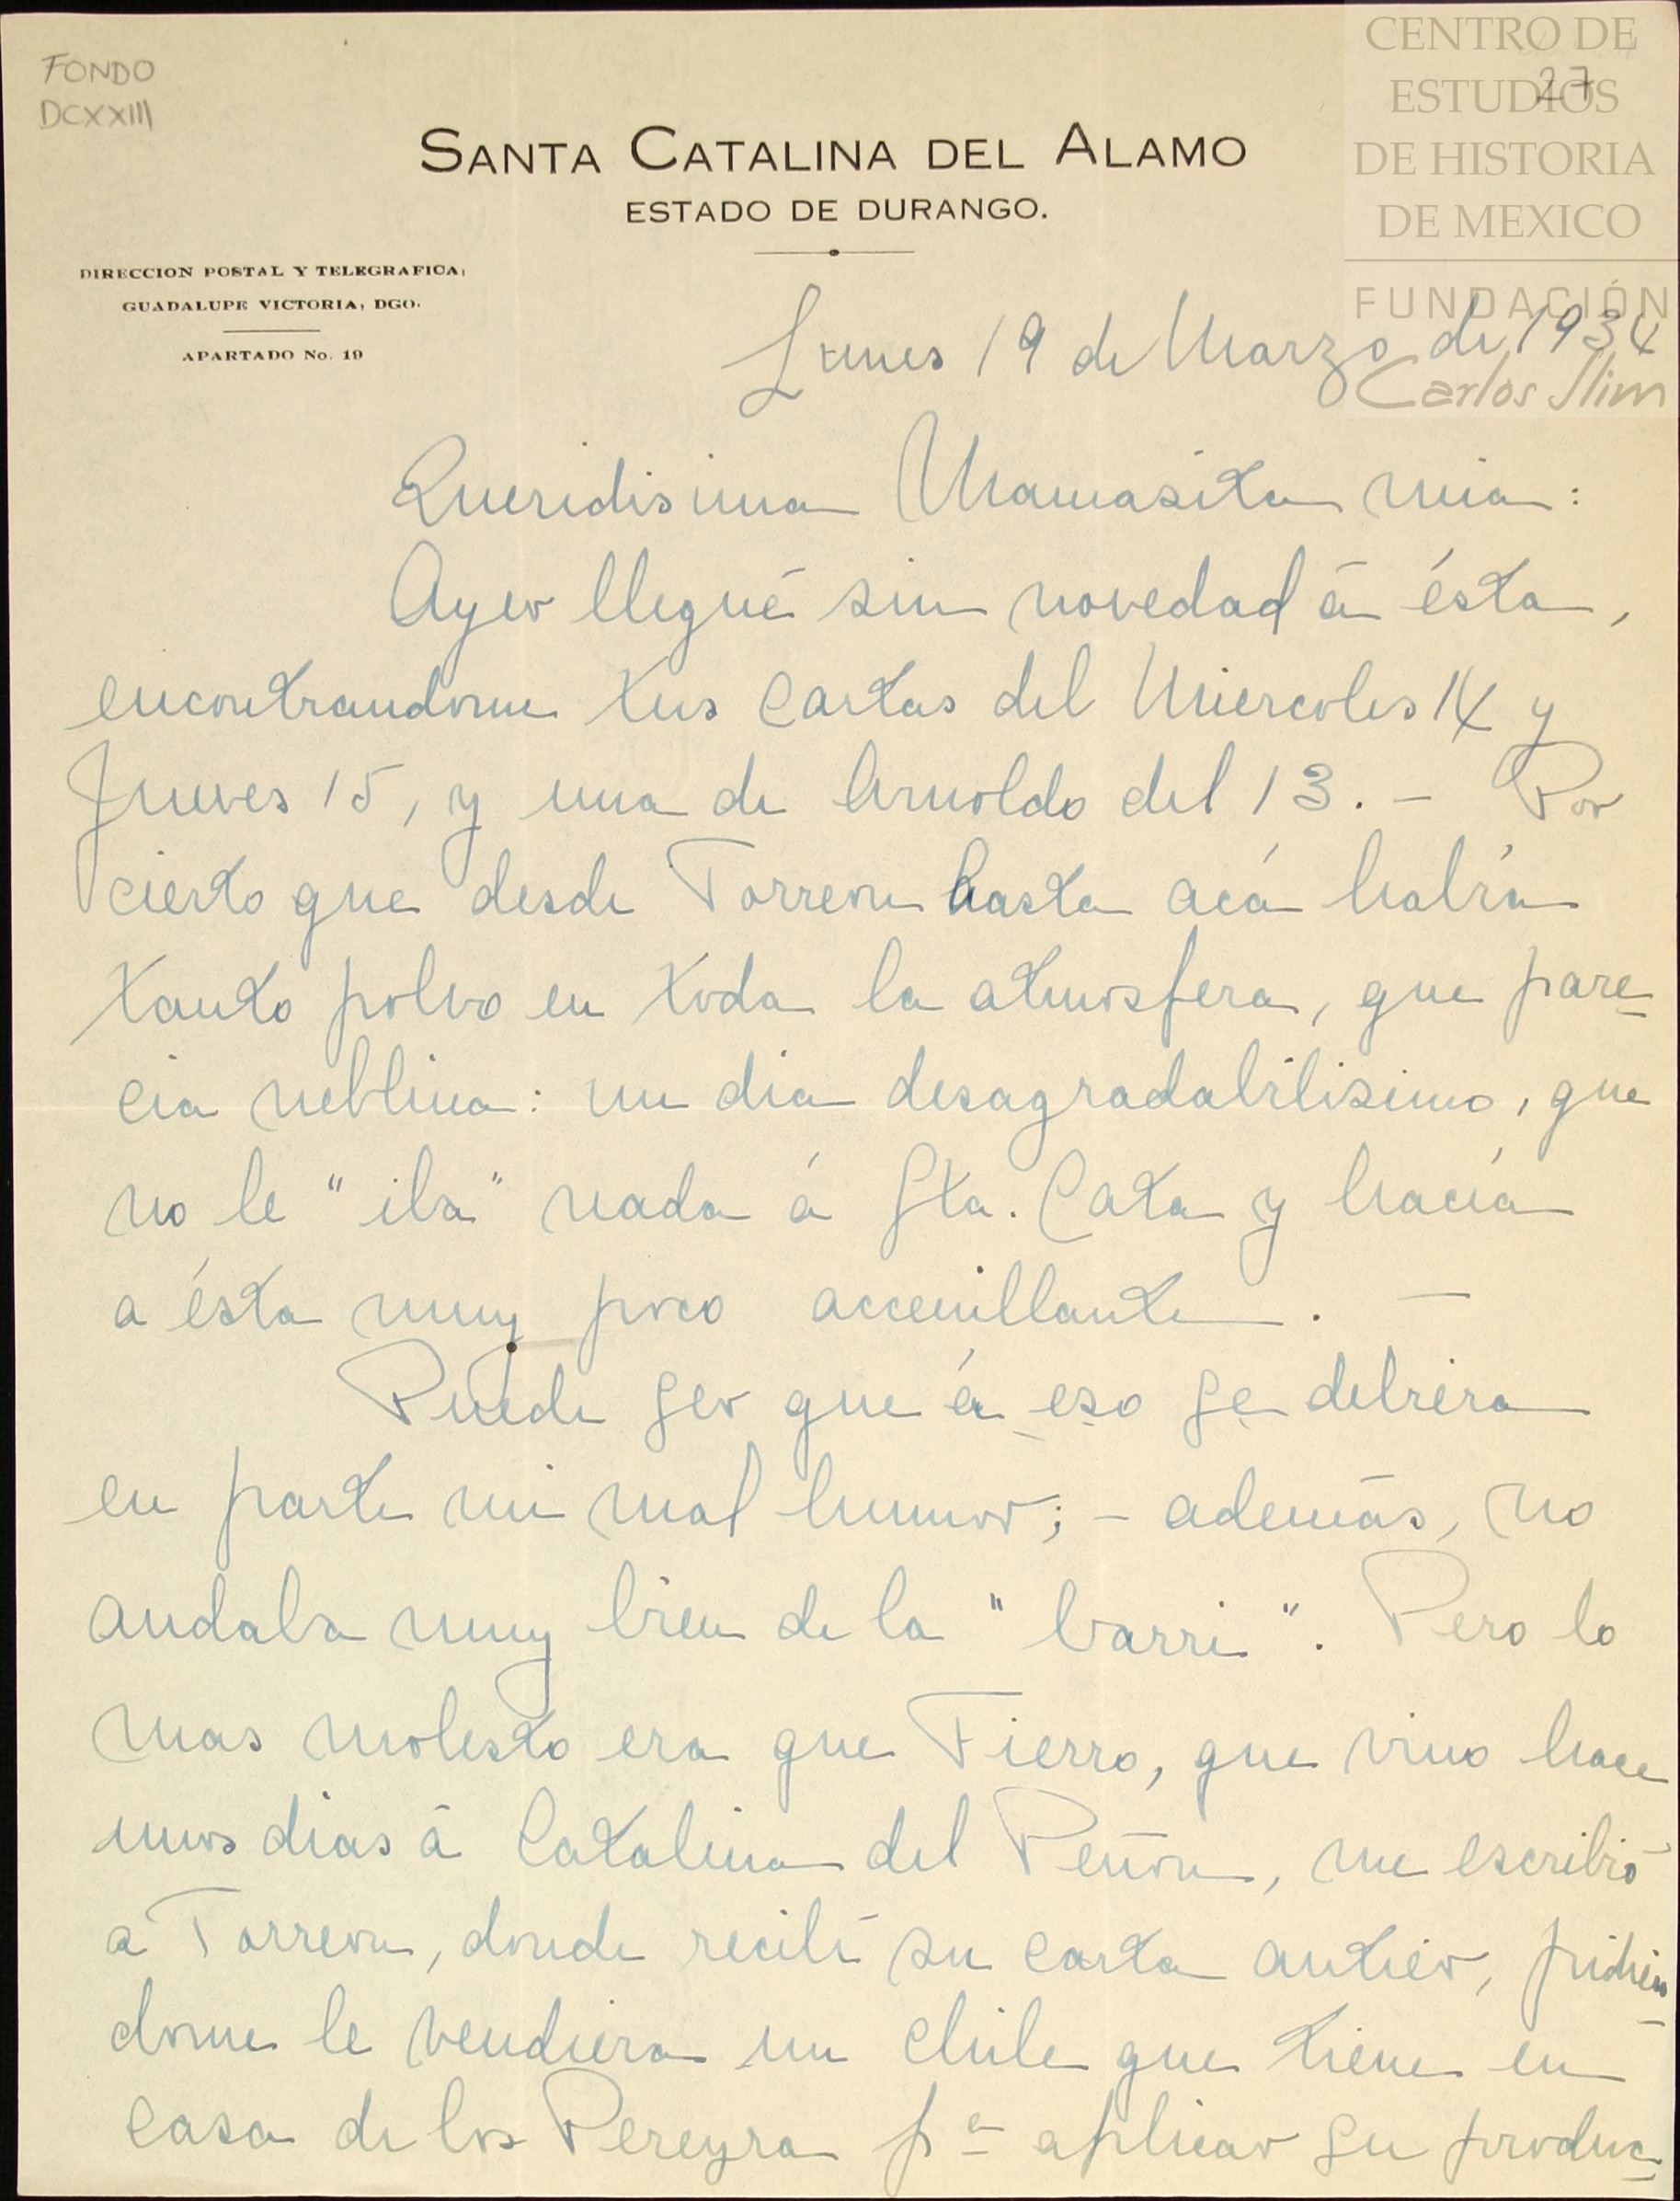 FONDO
DCXXIII
27
CENTRO DE
ESTUDIOS
DE HISTORIA
DE MEXICO
FUNDACIÓN
Carlos Slim
SANTA CATALINA DEL ALAMO
ESTADO DE DURANGO.
DIRECCION POSTAL Y TELEGRAFICA,
GUADALUPE VICTORIA, DGO.
APARTADO No. 19
Lunes 19 de Marzo de 1934
Queridisima Mamasita mia:
Ayer llegué sin novedad á ésta,
encontrandome tus cartas del Miercoles 14 y
Jueves 15, y una de Arnoldo del 13. - Por
cierto que desde Torreon hasta acá habia
tanto polvo en toda la atmosfera, que pare-
cia neblina: un dia desagradabilisimo, que
no le "iba" nada á Sta. Cata y hacía
a ésta muy poco accenillante. -
Puede ser que á eso se debiera
en parte mi mal humor; - además, no
andaba muy bien de la "barri". Pero lo
mas molesto era que Fierro, que vino hace
unos dias á Catalina del Peñon, me escribió
a Torreon, donde recibí su carta antier, pidien-
dome le vendiera un chile que tiene en
casa de los Pereyra pa aplicar su produc-